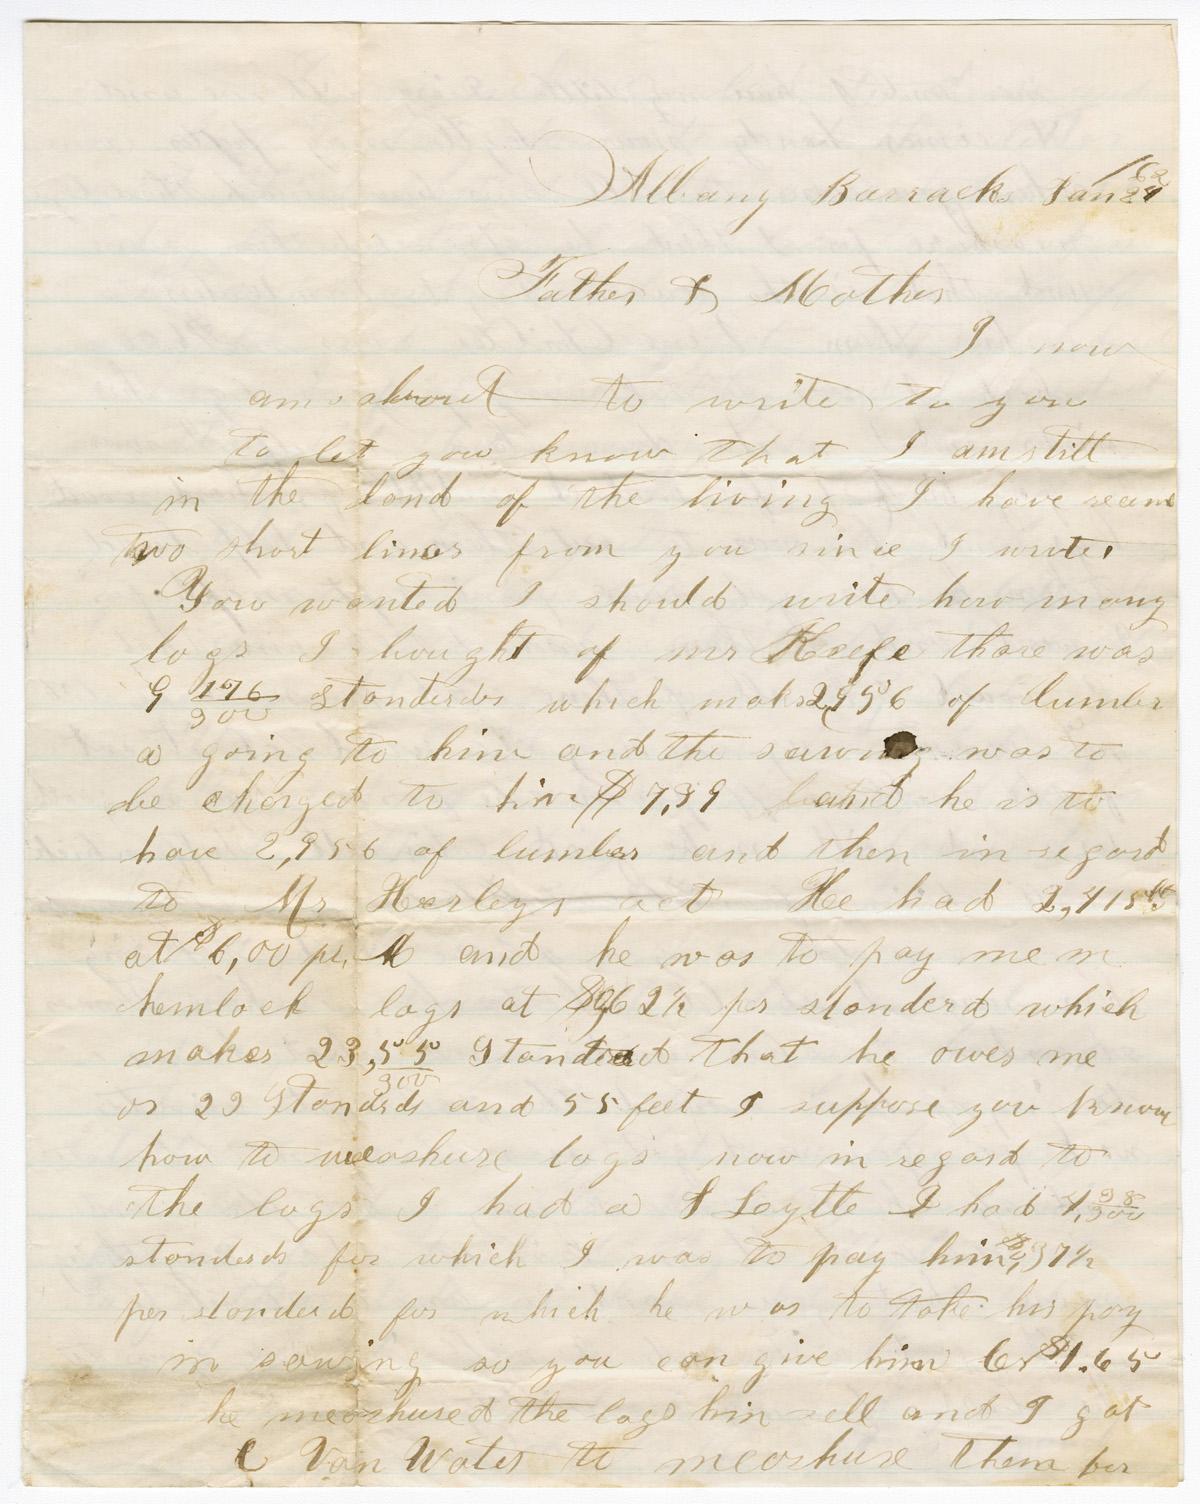 Albany Barracks Jan 24
62
Father & Mother
I now
am about to write to you
to let you know that I am still
in the land of the living I have
two short lines from you since I write,
You wanted I should write how many
logs I bought of mr Keefe thare was
9 196/300 standerds which maks 2,956 of lumber
a going to him and the sawing was to
be charged to him $7,39 and he is to
have 2,956 of lumber and then in regard
to Mr Herleys act He had 2,415
at $6,00 pr M and he was to pay me in
hemlock logs at 62½ per standerd which
makes 23,55/300 Standerd that he owes me
or 23 Standrds and 55 feet I suppose you know
how to meashure logs now in regard to
the logs I had a S Leytte I had 4,98/300
standerds for which I was to pay him ,37½
per standerd for which he was to take his pay
in sawing so you can give him Cr $1.65
he meashured the logs him self and I got
C Van Wates to meashure them for